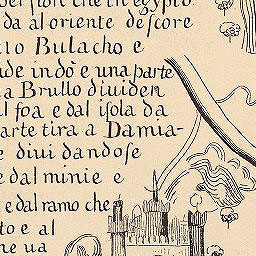 dei fiori che in egypto
da al oriente descore
tto Bulacho e
nde indò e una parte
a Brullo diuiden
l foa e dal isola da
arte tira a Damia-
e diui dandose
e dal minie e
e dal ramo che
to e al
ne ua